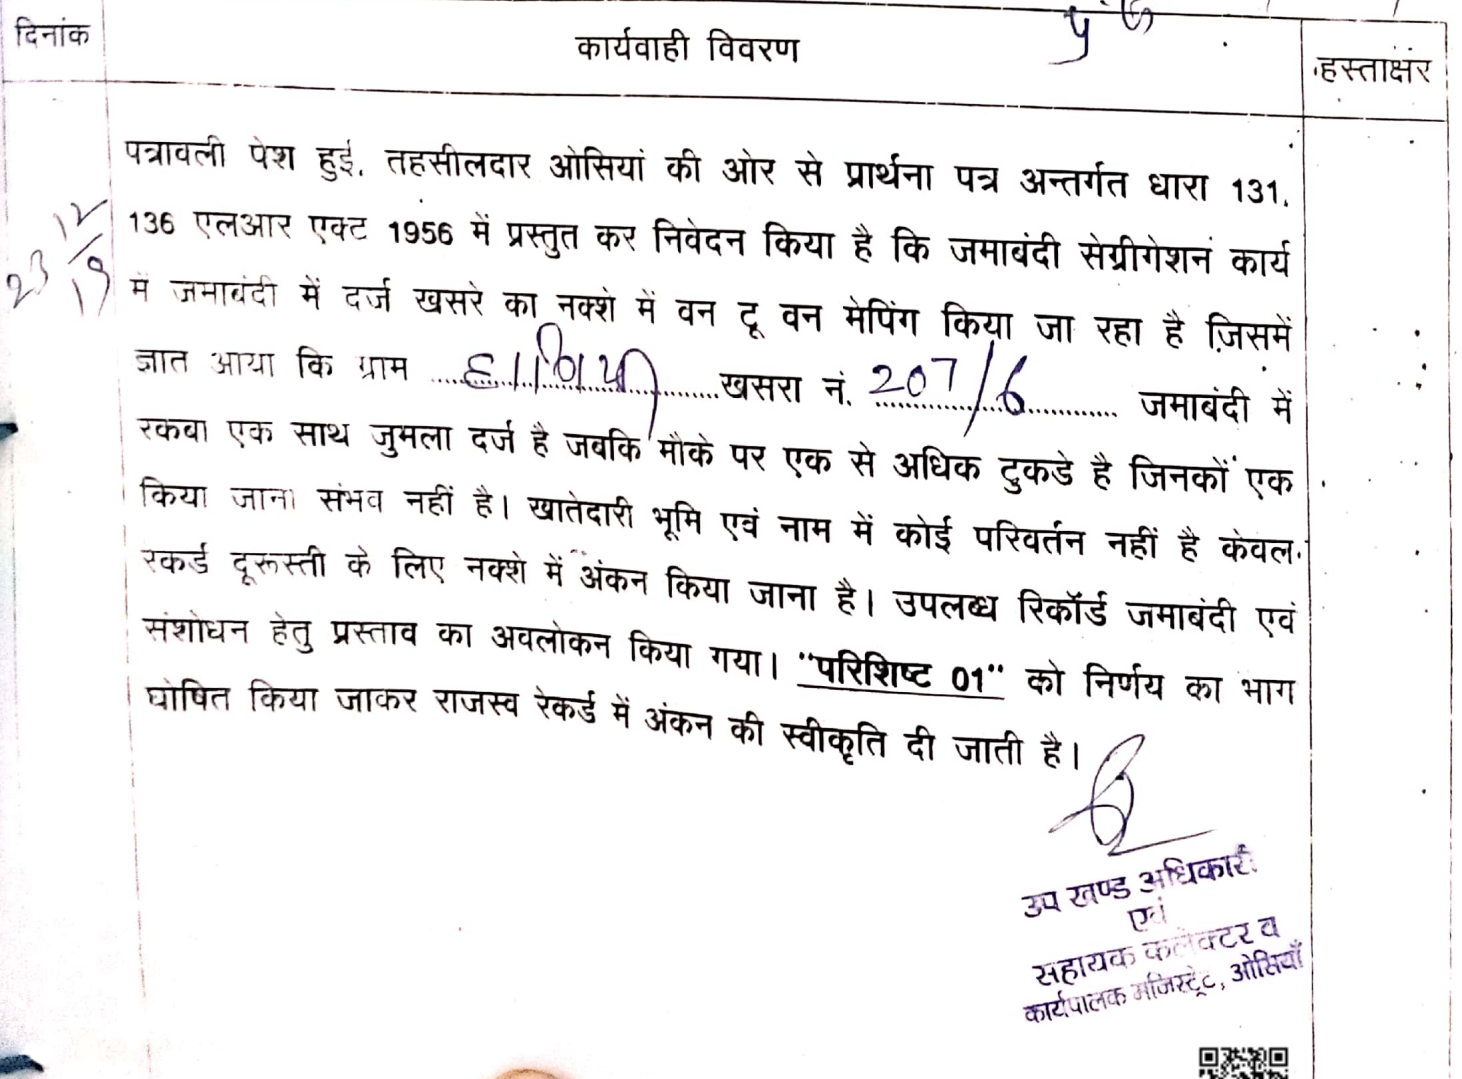 दिनांक
कार्यवाही विवरण
हस्ताक्षर
पत्रावली पेश हुई. तहसीलदार ओसियां की ओर से प्रार्थना पत्र अन्तर्गत धारा 131.
136 एलआर एक्ट 1956 में प्रस्तुत कर निवेदन किया है कि जमाबंदी सेग्रीगेशन कार्य
में जमाबंदी में दर्ज खसरे का नक्शे में वन टू वन मेपिंग किया जा रहा है जिसमें
ज्ञात आया कि ग्राम ........ खसरा नं. 207/6 ........ जमाबंदी में
रकबा एक साथ जुमला दर्ज है जबकि मौके पर एक से अधिक टुकडे है जिनकों एक
किया जाना संभव नहीं है। खातेदारी भूमि एवं नाम में कोई परिवर्तन नहीं है केवल
रकर्ड दूरूस्ती के लिए नक्शे में अंकन किया जाना है। उपलब्ध रिकॉर्ड जमाबंदी एवं
संशोधन हेतु प्रस्ताव का अवलोकन किया गया। "परिशिष्ट 01" को निर्णय का भाग
घोषित किया जाकर राजस्व रेकर्ड में अंकन की स्वीकृति दी जाती है।
23/12/19
उप खण्ड अधिकारी
एवं
सहायक कलेक्टर व
कार्यपालक मजिस्ट्रेट, ओसियाँ